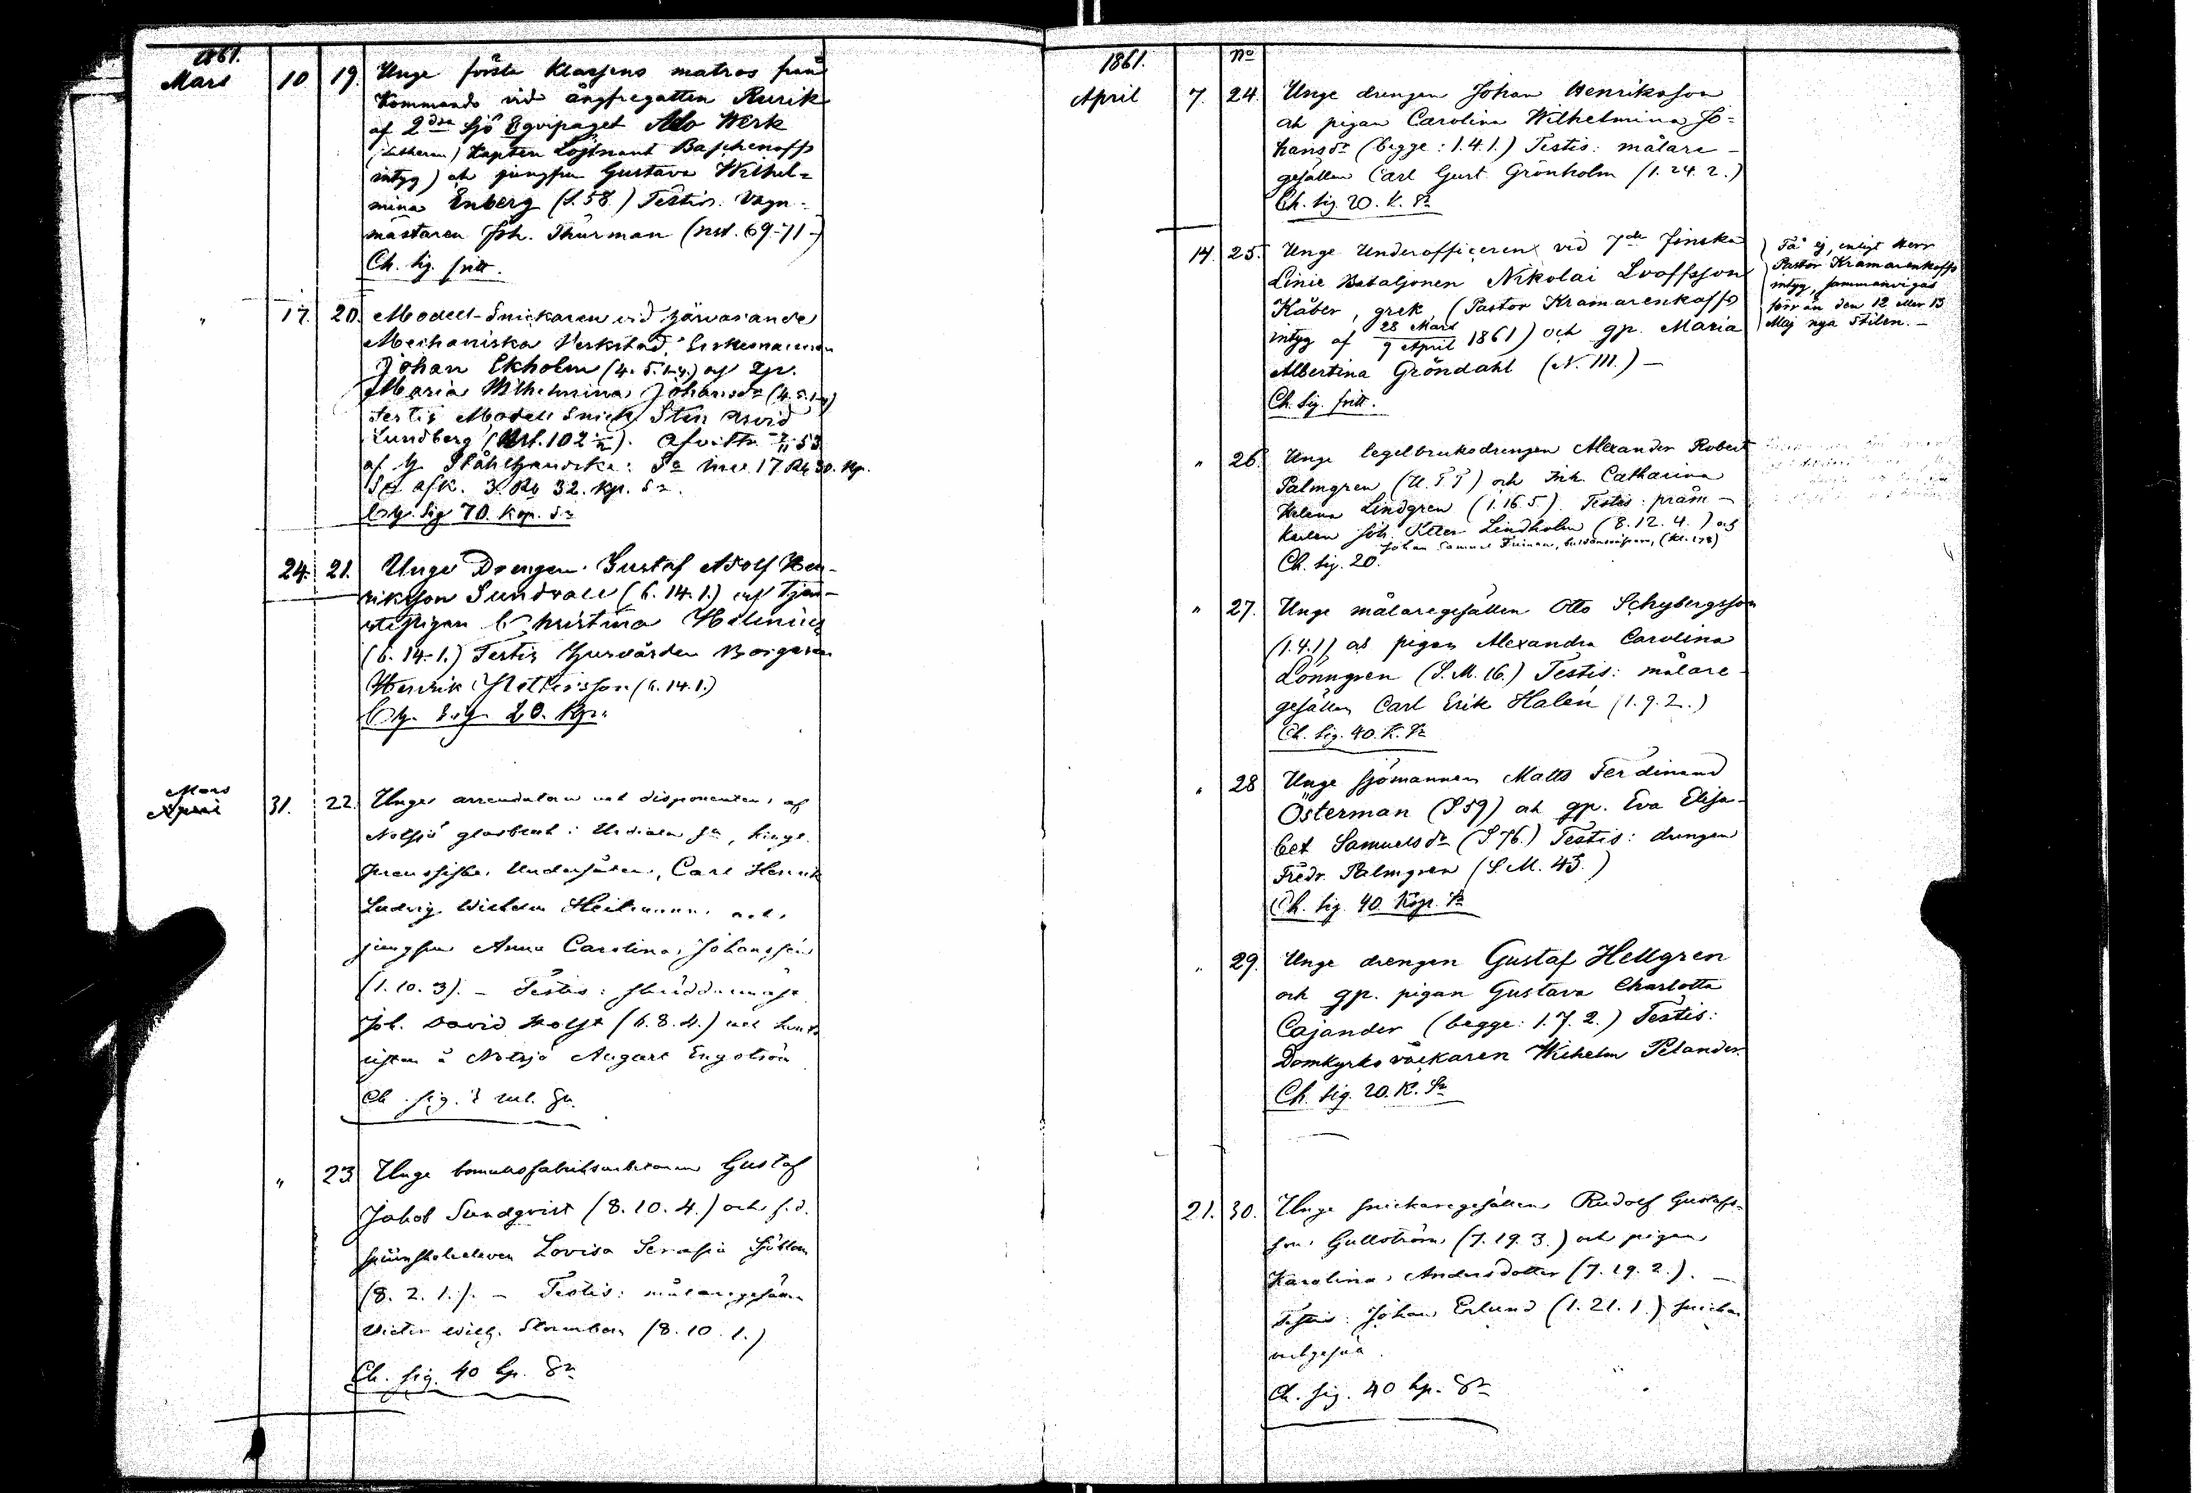 1861.
Mars 10 19. Unge förste Klassens matros från
Kommando vid ångfregatten Rurik
af 2dra Sjö Eqvipaget Ado Werk
(Lutheran) Kapten Löjtnant Baschenoffs
intyg) och jungfru Gustava Wilhel-
mina Enberg (S. 58.) Testis. Vagn-
mästaren Joh. Thurman (nst. 69-71-)
Ch. Sig. fritt.
" 17. 20. Modell-Snickaren vid härvarande
Mechaniska Verkstad,
Johan Ekholm (4. 5. 1.4.) och gp.
Maria Wilhelmina Johansdr (4.5.1.4)
Testis Modell Snick. Sten Arvid
Lundberg (Nst. 102 ½). Afvittr.
af H Stålhandske: Sa inv. 17 Rb 30. Kp.
Sa afk. 3. Rb 32. Kp. Sr.
Ch. Sig 70. Kop. Sr
24. 21. Unge Drengen Gustaf Adolf Hen-
riksson Sundvall (6. 14. 1.) och Tjen-
stepigan Christina Helenius
(6. 14. 1.) Testis Gusvärden Borgaren
Henrik Mattsson (6. 14. 1.)
Ch. Sig. 20. Kp.
Mars
April 31. 22. Unge arrendatorn och disponenten af
Notsjö glasbruk i Urdiala Sn, kingl.
preussiske Undersåten, Carl Henrik
Ludvig Wilhelm Heitmann och
jungfru Anna Carolina Johansson
(1. 10. 3). - Testis:
Joh. David Holst (6. 8. 4.) och
å Notsjö August Engström
Ch. sig. 3 rub. Sr.
" 23. Unge bomullsfabriksarbetaren Gustaf
Jakob Sundqvist (8. 10. 4.) och f. d.
Lovisa Serafia Sjöblom
(8. 2. 1.). - Testis: målaregesällen
Victor Wilh. (8. 10. 1.)
Ch. sig. 40 kp. Sr
1861. No
April 7. 24. Unge drengen Johan Henriksson
och pigan Carolina Wilhelmina Jo-
hansdr (begge: 1.4.1.) Testis: målare-
gesällen Carl Gust. Grönholm (1. 24. 2.)
Ch. Sig. 20. K. Sr
14. 25. Unge Underofficeren vid 7de Finska
Linie Bataljonen Nikolai Lvoffsson
Kåber, grek, (Pastor Kramarenkoffs
intyg af 28 Mars / 9 April 1861) och gp. Maria
Albertina Gröndahl (N. 111.) -
Ch. Sig. fritt.
Få ej, enligt Herr
Pastor Kramarenkoffs
intyg, sammanvigas
förr än den 12 eller 13
Maj nya Stilen. -
" 26. Unge tegelbruksdrengen Alexander Robert
Palmgren (U. T T) och Inh. Catharina
Helena Lindgren (1. 16. 5.). Testis: pråm-
karlen Joh. Peter Lindholm (8. 12. 4.) och
Johan Samuel (Kl. 178)
Ch. sig. 20.
" 27. Unge målaregesällen Otto Schybergsson
(1.4.1) och pigan Alexandra Carolina
Lönngren (S. M. 16.) Testis: målare-
gesällen Carl Erik Halén (1. 9. 2.)
Ch. Sig. 40. K. Sr
" 28 Unge sjömannen Matts Ferdinand
Österman (S 59) och gp. Eva Elisa-
bet Samuelsdr (S 76.) Testis: drengen
Fredr. Palmgren (S. M. 43.)
Ch. sig. 40. Kop. Sr
" 29. Unge drengen Gustaf Hellgren
och gp. pigan Gustava Charlotta
Cajander (begge: 1. 7. 2.) Testis:
Domkyrko väckaren Wilhelm Pelander.
Ch. sig. 20. K. Sr
21. 30. Unge snickaregesällen Rudolf Gustafs-
son Gullström (7. 19. 3.) och pigan
Karolina Andersdotter (7. 19. 2.). -
Testis: Johan Erlund (1. 21. 1.)
Ch. sig. 40 kp. Sr